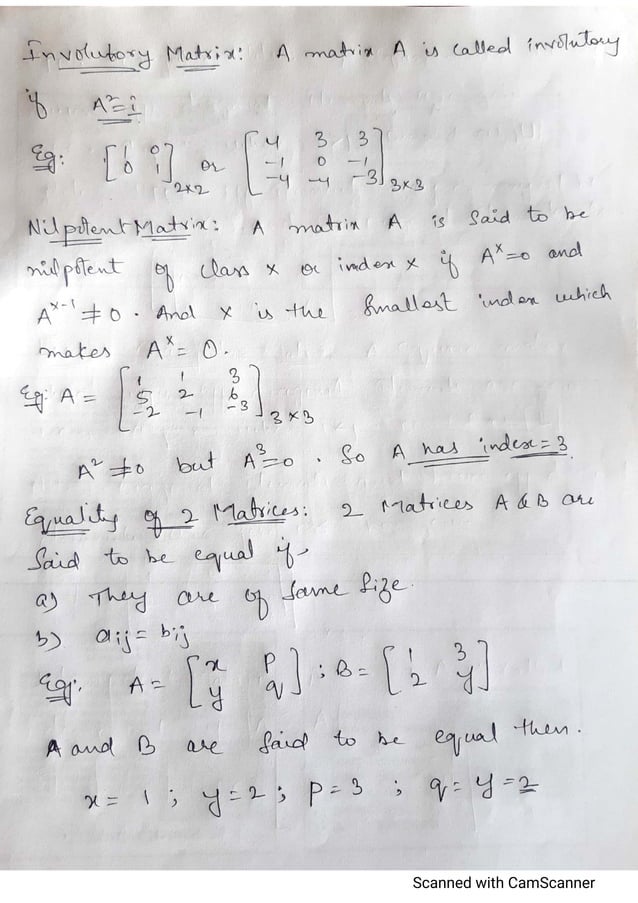 Involutory Matrix: A matrix A is called involutory
if A²=i
Eg: [1 0 ; 0 1]2×2 or [4 3 3 ; -1 0 -1 ; -4 -4 -3]3×3
Nilpotent Matrix: A matrix A is said to be
nilpotent of class x or index x if Aˣ=0 and
Aˣ⁻¹≠0. And x is the smallest index which
makes Aˣ=0.
Eg: A = [1 1 3 ; 5 2 6 ; -2 -1 -3]3×3
A²≠0 but A³=0. So A has index=3.
Equality of 2 Matrices: 2 Matrices A & B are
said to be equal if
a) They are of same size.
b) aij = bij
Eg: A = [x p ; y q] ; B = [1 3 ; 2 y]
A and B are said to be equal then.
x = 1 ; y = 2 ; p = 3 ; q = y = 2
Scanned with CamScanner